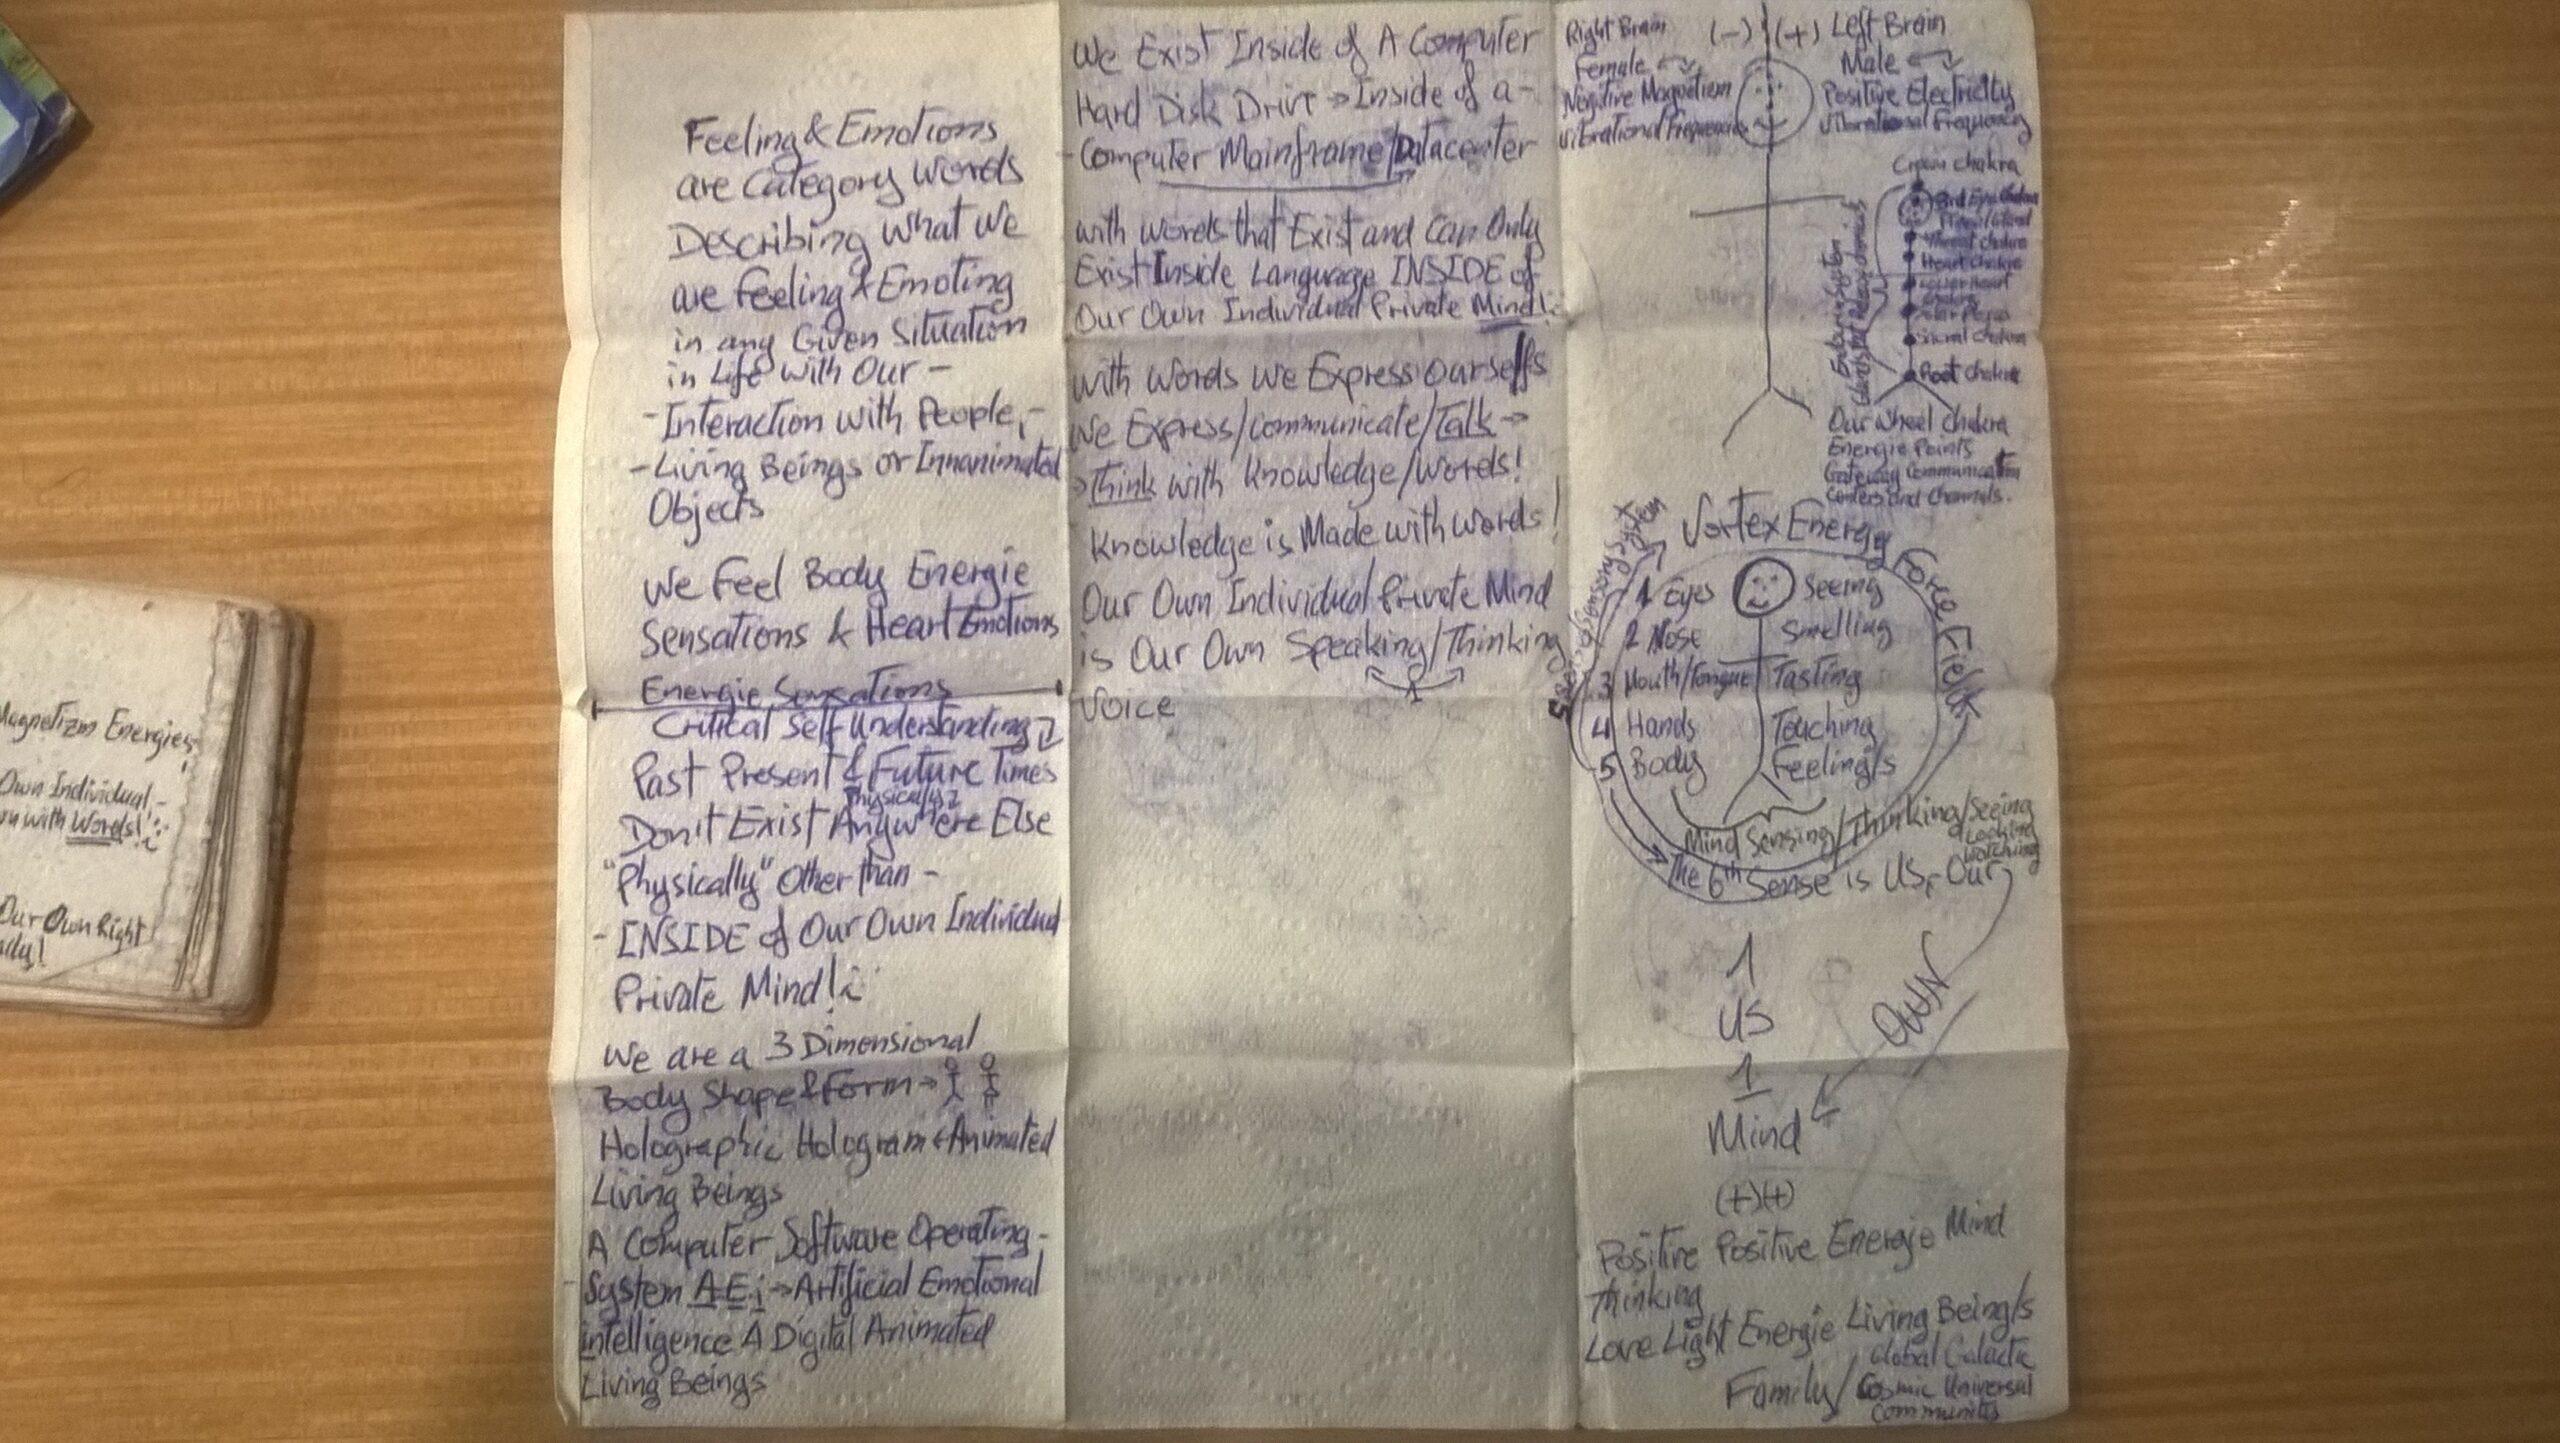 Magnetizm Energies,
Own Individual -
with Words!
Our Own Right
Feeling & Emotions
are Category Words
Describing What We
are Feeling & Emoting
in any Given Situation
in Life With Our -
- Interaction with People, -
- Living Beings or Innanimated
Objects
We Feel Body Energie
Sensations & Heart Emotions
Energie Sensations
Critical Self Understanding
Past Present & Future Times
Physically
Don't Exist Anywhere Else
"Physically" Other than -
- INSIDE of Our Own Individual
Private Mind!
We are a 3 Dimensional
Body Shape & Form →
Holographic Hologram + Animated
Living Beings
A Computer Software Operating -
System A.E.i → Artificial Emotional
intelligence A Digital Animated
Living Beings
We Exist Inside of A Computer
Hard Disk Drive → Inside of a -
- Computer Mainframe/Datacenter
with words that Exist and Can Only
Exist Inside Language INSIDE of
Our Own Individual Private Mind!
With Words We Express Ourselfs
We Express/Communicate/Talk →
→ Think with Knowledge/Words!
Knowledge is Made with Words!
Our Own Individual Private Mind
is Our Own Speaking/Thinking
Voice
Right Brain (-) (+) Left Brain
Female Male
Negative Magnetism Positive Electricity
Vibrational Frequencie Vibrational Frequency
Crown Chakra
3rd Eye Chakra
Throat Chakra
Heart Chakra
Lower Heart
Chakra
Solar Plexus
Sacral Chakra
Root Chakra
Our Wheel Chakra
Energie Points
Gateway Communication
Centers and Channels.
Vortex Energy Force Fields
1 Eyes Seeing
2 Nose Smelling
3 Mouth/Tongue Tasting
4 Hands Touching
5 Body Feeling/s
Mind Sensing/Thinking/Seeing
Looking
Watching
The 6th Sense is US, Our
OWN
1
US
1
Mind
(+)(+)
Positive Positive Energie Mind
Thinking
Love Light Energie Living Being/s
Global Galactic
Family/Cosmic Universal
Communitis